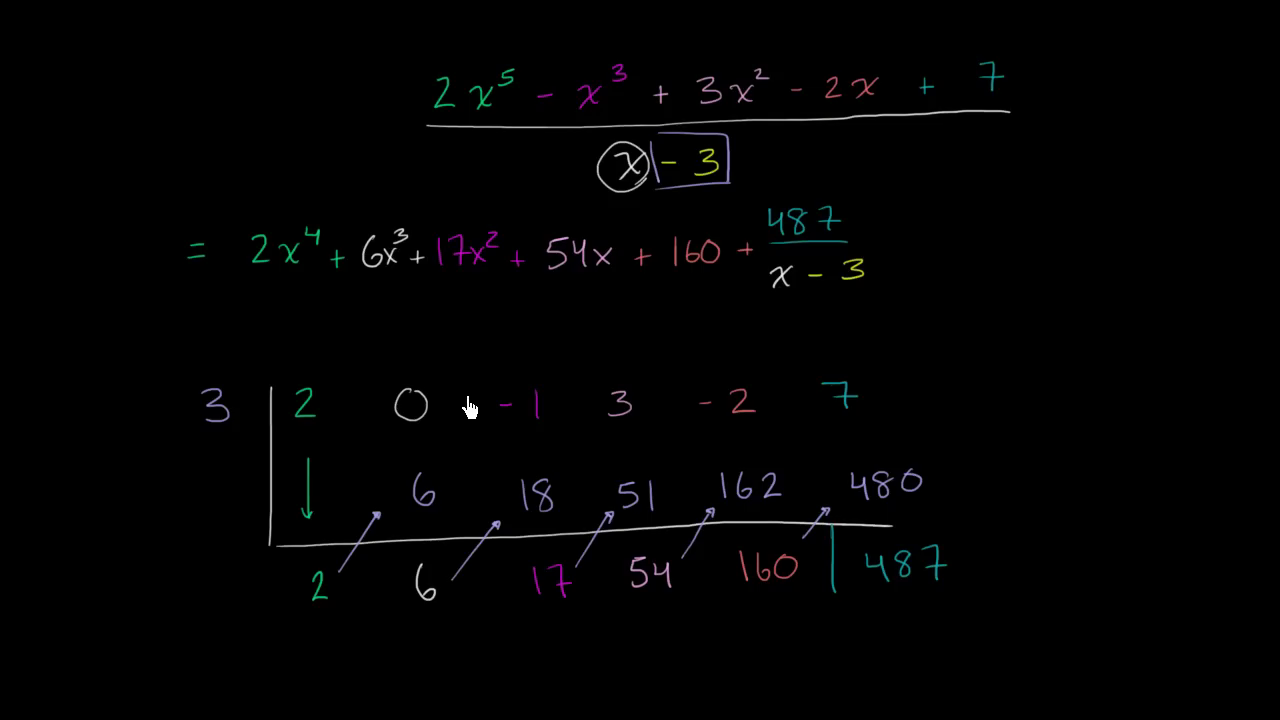 2x⁵ - x³ + 3x² - 2x + 7
x - 3
= 2x⁴ + 6x³ + 17x² + 54x + 160 + 487
x - 3
3 2 0 -1 3 -2 7
6 18 51 162 480
2 6 17 54 160 487